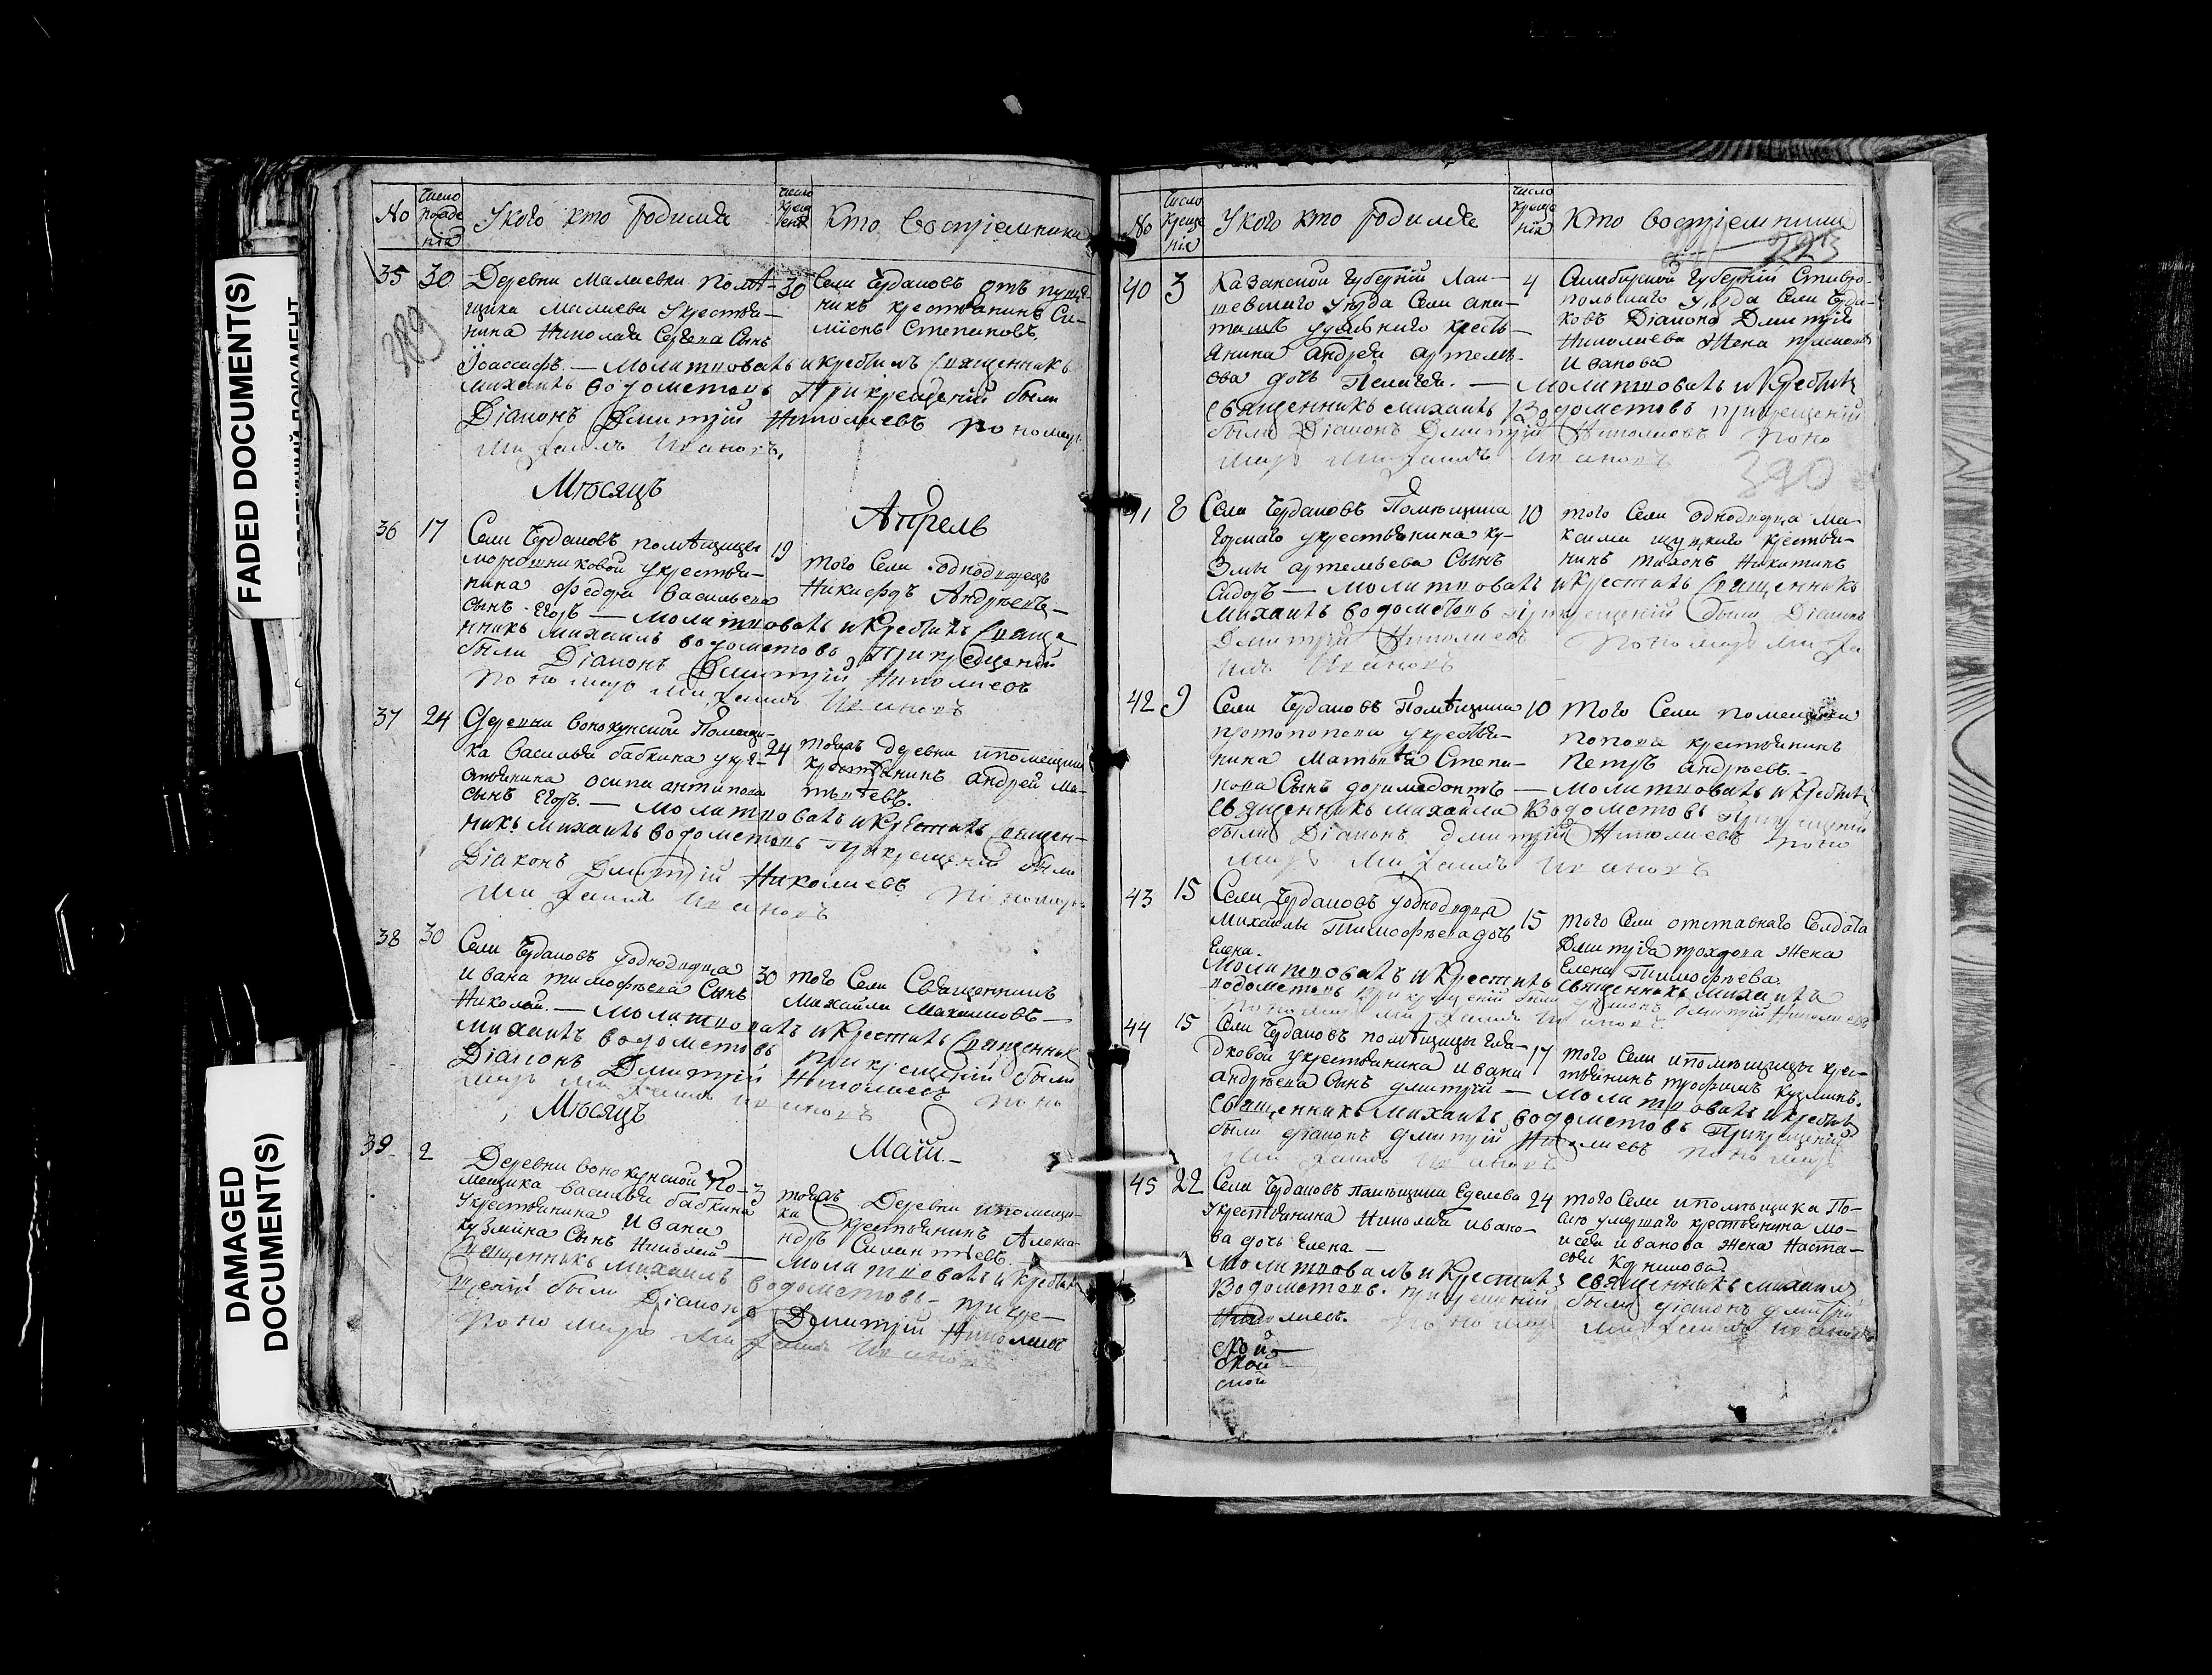 FADED DOCUMENT(S)
DAMAGED
DOCUMENT(S)
No
Число
рожде
нія
У кого кто родился
Число
креще
нія
Кто воспріемники
389
35 30 Деревни Малаевки помѣ-
щика Малаева у крестья-
нина Николая Сергева Сынъ
Іоассафъ. — Молитвовалъ и крестилъ Священникъ
Михаилъ Водометовъ При крещеніи были
Діаконъ Дмитрій Николаевъ Пономарь
Михаилъ Ивановъ.
30 Села Чердаковъ
крестьянинъ Си-
Степановъ.
Мѣсяцъ
Апрель
36 17 Села Чердаковъ помѣщицы
у крестья-
нина Федора Васильева
сынъ Егоръ — Молитвовалъ и крестилъ Свяще
нникъ Михаилъ Водометовъ При крещеніи
были Діаконъ Дмитрій Николаевъ
Пономарь Михаилъ Ивановъ
19 того Села однодворецъ
Никифоръ Андрѣевъ —
37 24 Деревни Вонокунской Помещи-
ка Василья бабкина у кре-
стьянина осипа антипова
сынъ Егоръ. — Молитвовалъ и крестилъ Священ-
никъ Михаилъ Водометовъ При крещеніи были
Діаконъ Дмитрій Николаевъ Пономарь
Михаилъ Ивановъ
24 тоежъ деревни и помещика
крестьянинъ андрей Ма-
твѣевъ.
38 30 Села Чердаковъ у однодворца
Ивана тимофѣева Сынъ
Николай. — Молитвовалъ и крестилъ Священникъ
Михаилъ Водометовъ При крещеніи были
Діаконъ Дмитрій Николаевъ Поно
марь Михаилъ Ивановъ
30 того Села Священникъ
Михайла
Мѣсяцъ
Маій. —
39 2 Деревни Вонокунской По-
мещика Василья бабкина
у крестьянина Ивана
кузмина Сынъ Николай —
Священникъ Михаилъ Водометовъ — При кре-
щеніи были Діаконъ Дмитрій Николаевъ
Пономарь Михаилъ Ивановъ
3 тоежъ Деревни и помещи-
ка крестьянинъ Алекса
ндръ Силантьевъ.
Молитвовалъ и крестилъ
No
Число
креще
нія
У кого кто родился
Число
креще
нія
Кто воспріемники
223
390
40 3 Казанской Губерніи Лаи-
шевскаго уѣзда Села
удѣльнаго кресть-
янина Андрея артемь-
ева дочь Пелагея. — Молитвовалъ и крестилъ
Священникъ Михаилъ Водометовъ При крещеніи
были Діаконъ Дмитрій Николаевъ Поно
марь Михаилъ Ивановъ
4 Симбирской Губерніи Ставро-
польскаго уѣзда Села Черда-
ковъ Діакона Дмитрія
Николаева Жена
Иванова
41 8 Села Чердаковъ Помѣщика
у крестьянина Ку-
змы артемьева Сынъ
Сидоръ — Молитвовалъ и крестилъ Священникъ
Михаилъ Водометовъ При крещеніи были Діаконъ
Дмитрій Николаевъ Пономарь Миха
илъ Ивановъ
10 того Села однодворца Ма-
ксима крестья-
нинъ Никитинъ
42 9 Села Чердаковъ Помѣщика
протопопова у крестья-
нина Матвѣя Степа-
нова Сынъ доримедонтъ — Молитвовалъ и крестилъ
Священникъ Михайла Водометовъ При крещеніи
были Діаконъ Дмитрій Николаевъ Поно
марь Михаилъ Ивановъ
10 Того Села помещика
попова крестьянинъ
Петръ андрѣевъ. —
43 15 Села Чердаковъ у однодворца
Михайлы Тимофѣева дочь
Елена.
Молитвовалъ и крестилъ Священникъ Михаилъ
Водометовъ При крещеніи были Діаконъ Дмитрій Николаевъ
Пономарь Михаилъ Ивановъ
15 того Села отставнаго Солдата
Дмитрія прохорова Жена
Елена Тимофѣева.
44 15 Села Чердаковъ помѣщицы Гла-
дковой у крестьянина Ивана
андрѣева Сынъ дмитрій — Молитвовалъ и крестилъ
Священникъ Михаилъ Водометовъ При крещеніи
были діаконъ дмитрій Николаевъ Пономарь
Михаилъ Ивановъ
17 того Села и помѣщицы крес-
тьянинъ трофимъ Кузминъ.
45 22 Села Чердаковъ Помѣщика Еделева
у крестьянина Николая Ивано-
ва дочь Елена. —
Молитвовалъ и крестилъ Священникъ Михаилъ
Водометовъ. При крещеніи были діаконъ дмитрій
Николаевъ. Пономарь Михаилъ Ивановъ
24 того Села и помѣщика По-
умершаго крестьянина Мо-
исея иванова Жена Наста-
сья
ской —
ской —
ской